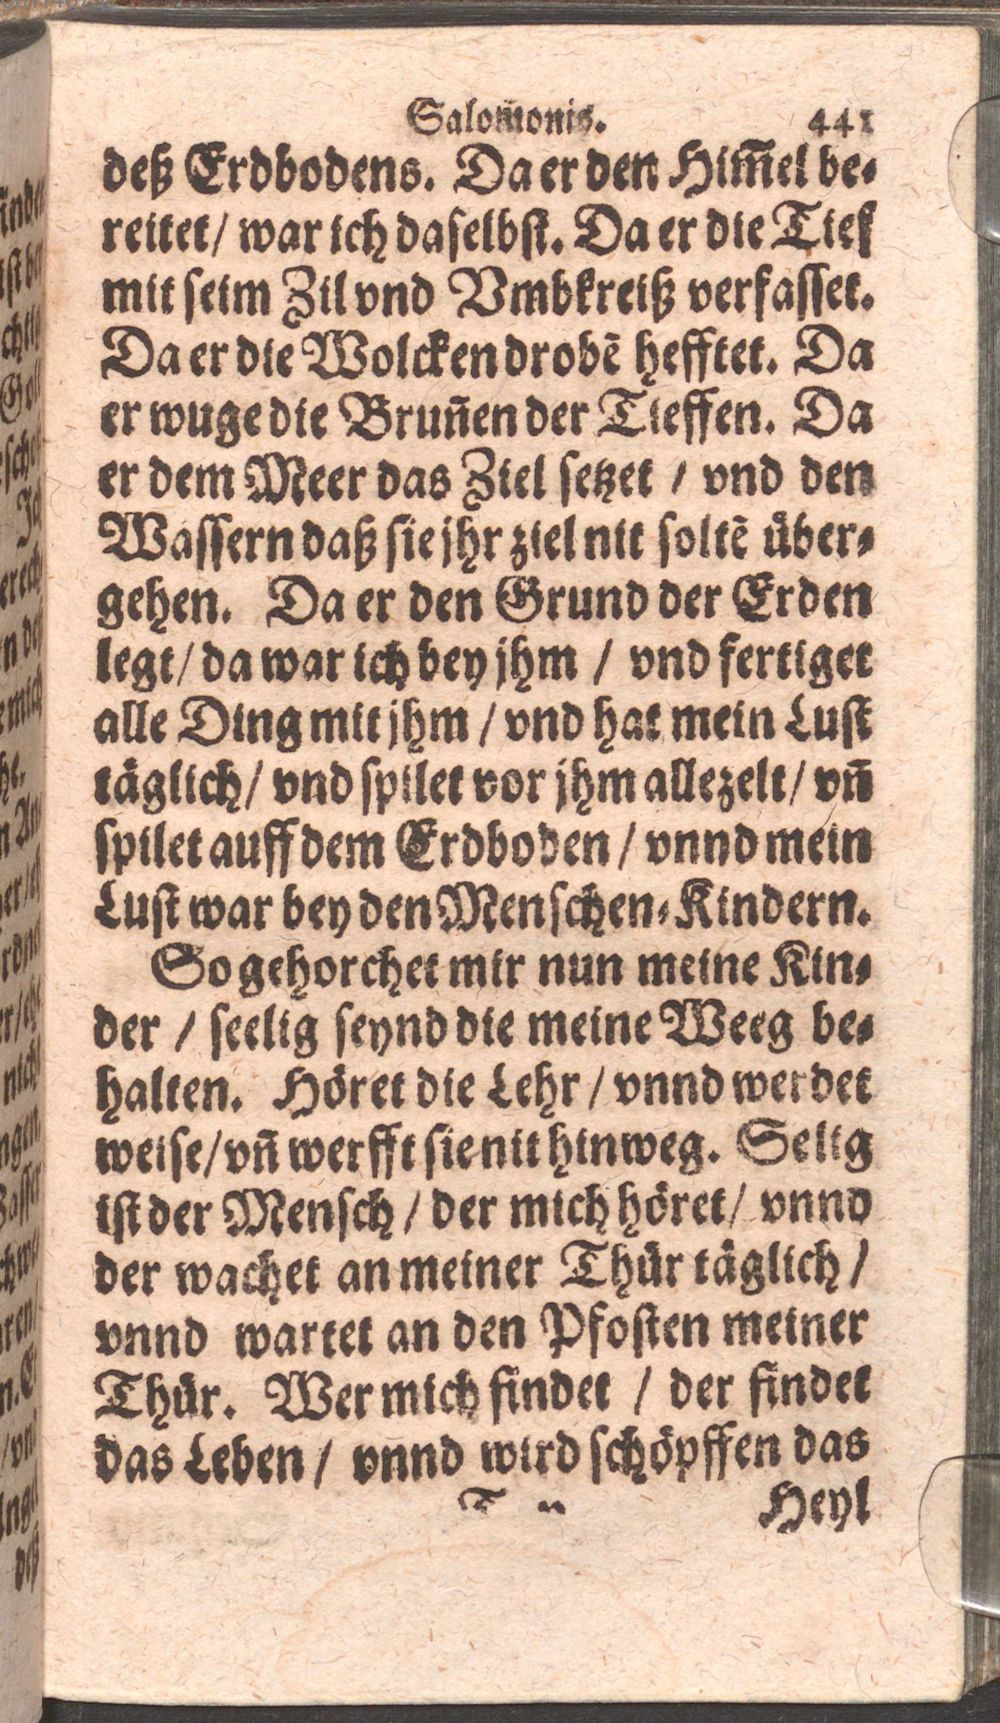 Salom̃onis. 441
deß Erdbodens. Da er den Him̃el be-
reitet/ war ich daselbst. Da er die Tief
mit seim Zil vnd Vmbkreiß verfasset.
Da er die Wolcken drobẽ hefftet. Da
er wuge die Brun̄en der Tieffen. Da
er dem Meer das Ziel setzet / vnd den
Wassern daß sie jhr ziel nit soltẽ über-
gehen. Da er den Grund der Erden
legt/ da war ich bey jhm / vnd fertiget
alle Ding mit jhm / vnd hat mein Lust
täglich/ vnd spilet vor jhm allezelt/ vn̄
spilet auff dem Erdboden / vnnd mein
Lust war bey den Menschen-Kindern.
So gehorchet mir nun meine Kin-
der / seelig seynd die meine Weeg be-
halten. Höret die Lehr / vnnd werdet
weise/ vn̄ werfft sie nit hinweg. Selig
ist der Mensch / der mich höret/ vnnd
der wachet an meiner Thür täglich /
vnnd wartet an den Pfosten meiner
Thür. Wer mich findet / der findet
das Leben / vnnd wird schöpffen das
Heyl